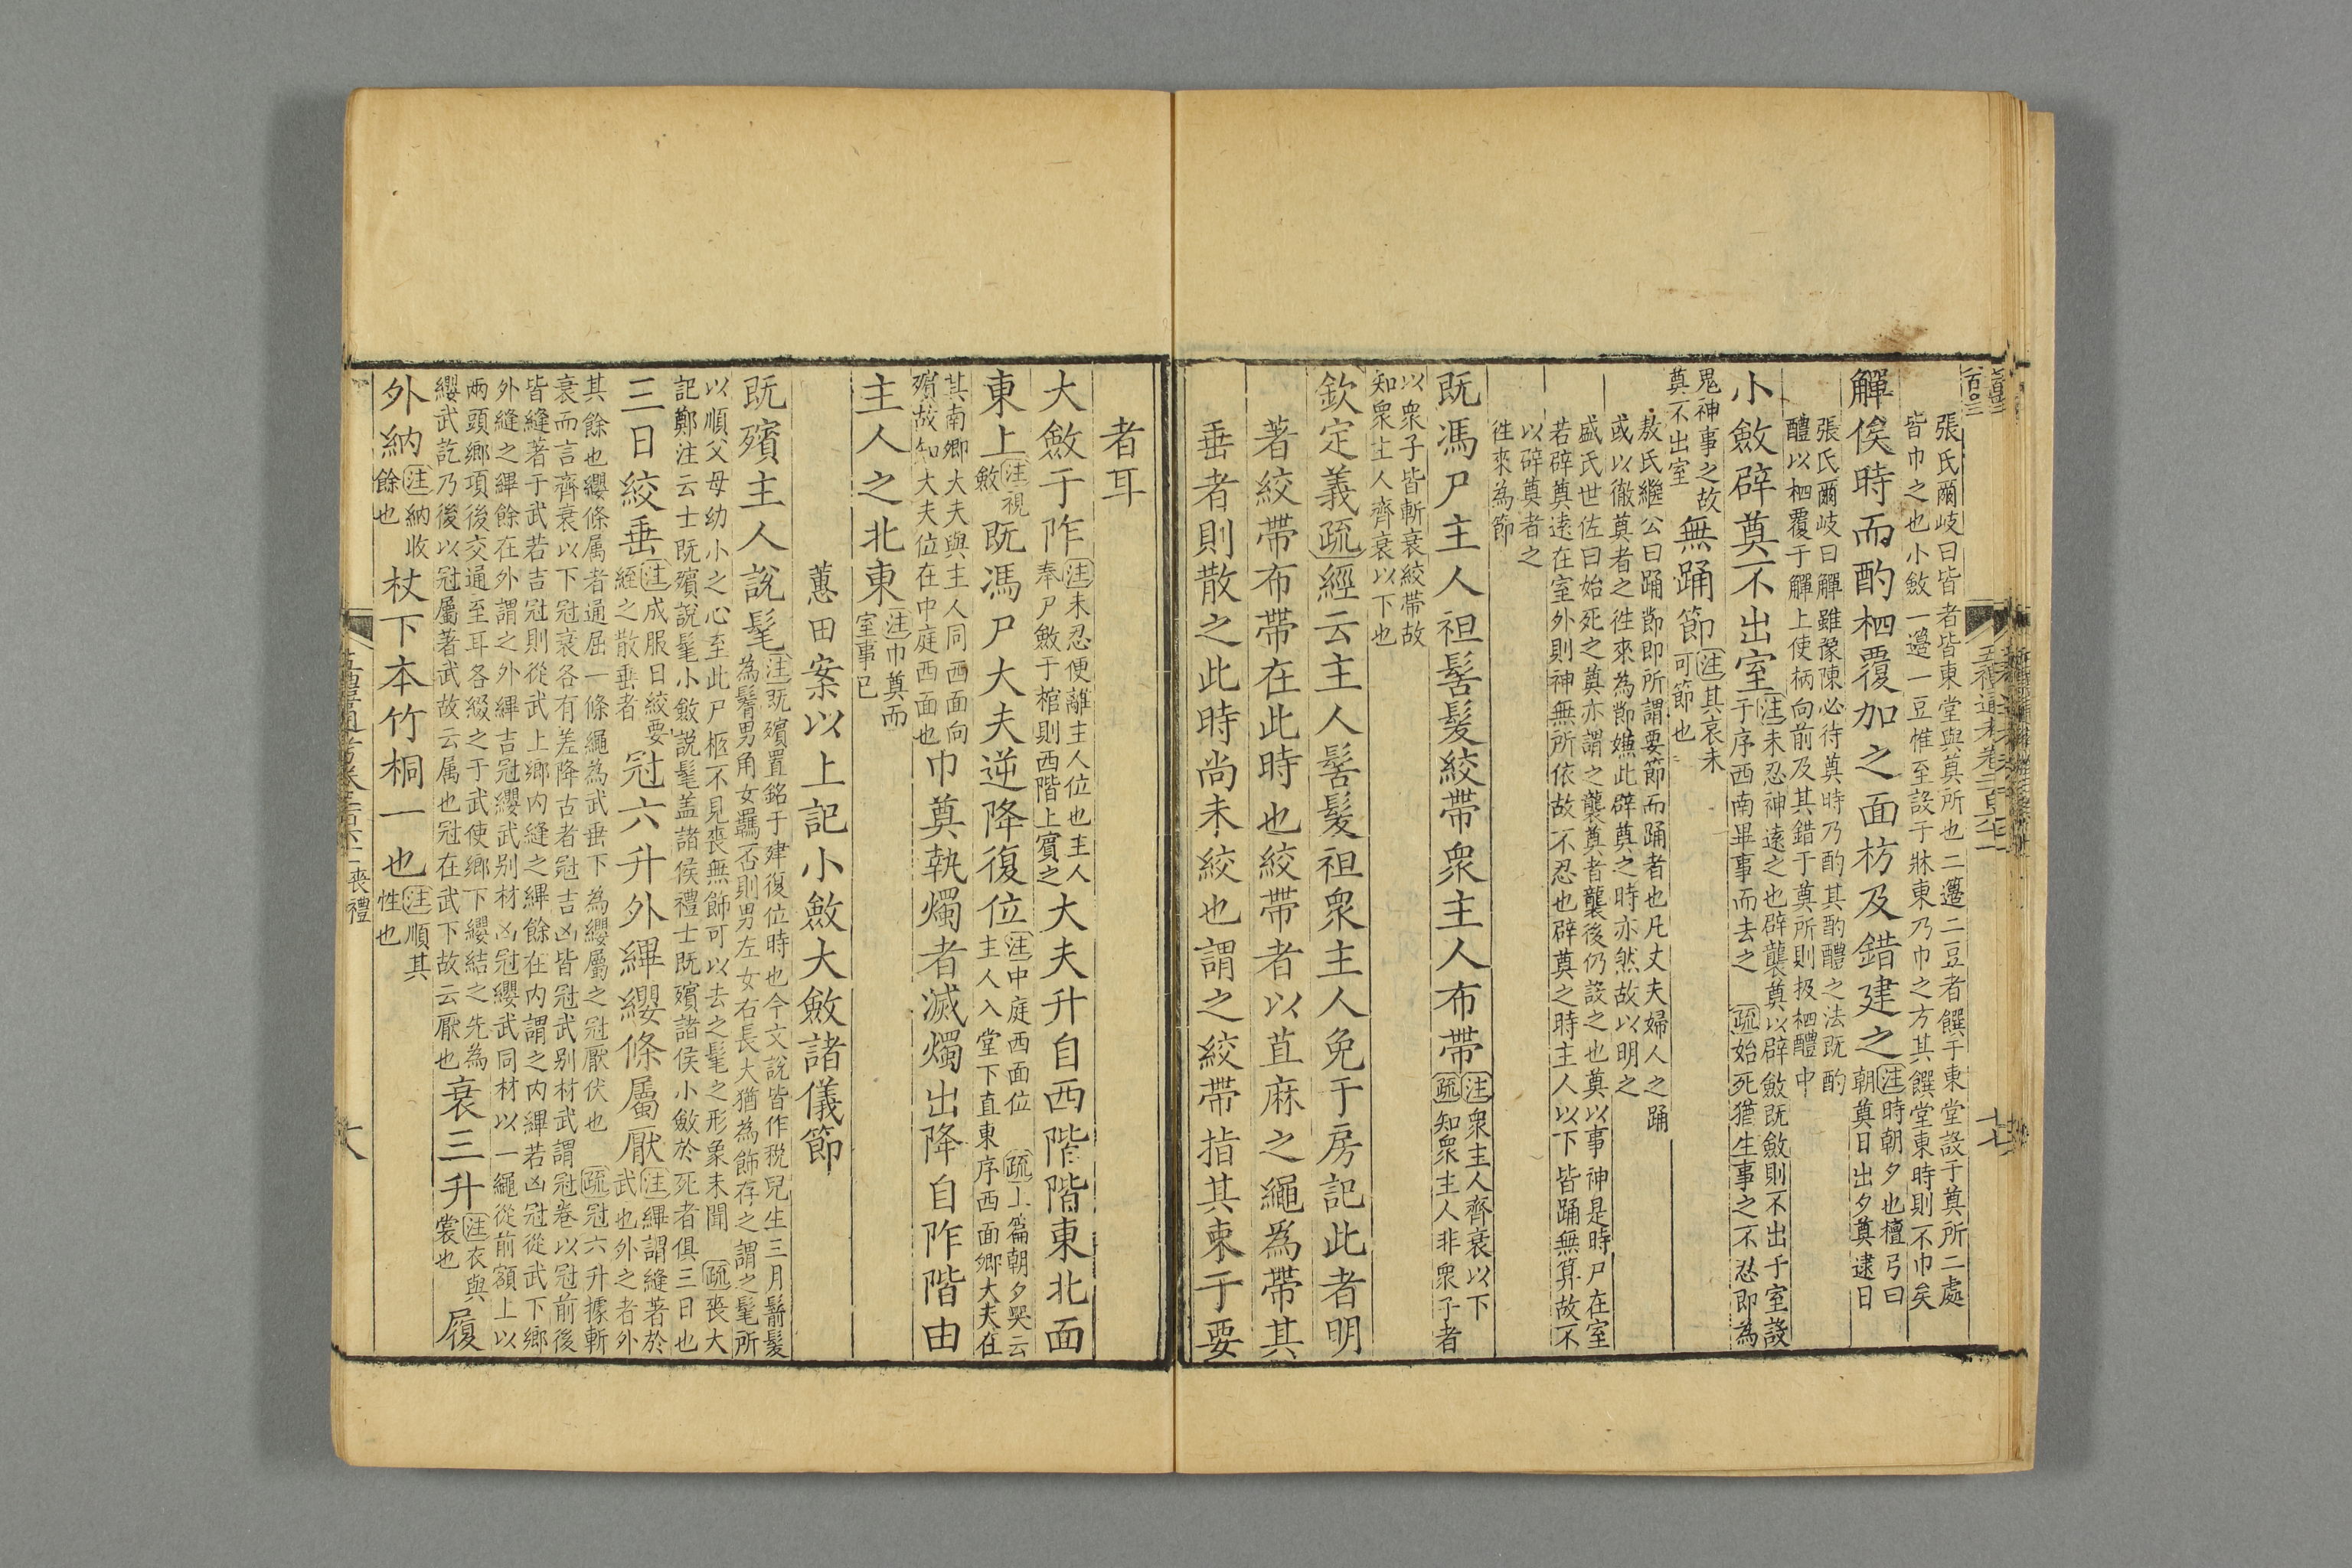 張氏爾岐曰皆者皆東堂與奠所也二籩二豆者饌于東堂設于奠所二處
皆巾之也小斂一籩一豆惟至設于牀東乃巾之方其饌堂東時則不巾矣
觶俟時而酌柶覆加之面枋及錯建之
注時朝夕也檀弓曰
朝奠日出夕奠逮日
張氏爾岐曰觶雖豫陳必待奠時乃酌其酌醴之法既酌
醴以柶覆于觶上使柄向前及其錯于奠所則扱柶醴中
小斂辟奠不出室
注未忍神遠之也辟襲奠以辟斂既斂則不出于室設
于序西南畢事而去之 疏始死猶生事之不忍即為
鬼神事之故
奠不出室
無踊節
注其哀未
可節也
敖氏繼公曰踊節即所謂要節而踊者也凡丈夫婦人之踊
或以徹奠者之徃來為節嫌此辟奠之時亦然故以明之
盛氏世佐曰始死之奠亦謂之襲奠者襲後仍設之也奠以事神是時尸在室
若辟奠遠在室外則神無所依故不忍也辟奠之時主人以下皆踊無算故不
以辟奠者之
徃來為節
既馮尸主人袒髻髮絞帶衆主人布帶
注衆主人齊衰以下
疏知衆主人非衆子者
以衆子皆斬衰絞帶故
知衆主人齊衰以下也
欽定義疏經云主人髻髮袒衆主人免于房記此者明
著絞帶布帶在此時也絞帶者以苴麻之繩為帶其
垂者則散之此時尚未絞也謂之絞帶指其束于要
者耳
大斂于阼
注未忍便離主人位也主人
奉尸斂于棺則西階上賓之
大夫升自西階階東北面
東上
注視
斂
既馮尸大夫逆降復位
注中庭西面位 疏上篇朝夕哭云
主人入堂下直東序西面卿大夫在
其南卿大夫與主人同西面向
殯故知大夫位在中庭西面也
巾奠執燭者滅燭出降自阼階由
主人之北東
注巾奠而
室事已
蕙田案以上記小斂大斂諸儀節
既殯主人說髦
注既殯置銘于肂復位時也今文說皆作稅兒生三月鬋髮
為鬌男角女羈否則男左女右長大猶為飾存之謂之髦所
以順父母幼小之心至此尸柩不見喪無飾可以去之髦之形象未聞 疏喪大
記鄭注云士既殯說髦小斂說髦蓋諸侯禮士既殯諸侯小斂於死者俱三日也
三日絞垂
注成服日絞要
絰之散垂者
冠六升外縪纓條屬厭
注縪謂縫著於
武也外之者外
其餘也纓條属者通屈一條繩為武垂下為纓屬之冠厭伏也 疏冠六升據斬
衰而言齊衰以下冠衰各有差降古者冠吉凶皆冠武别材武謂冠卷以冠前後
皆縫著于武若吉冠則從武上鄉内縫之縪餘在内謂之内縪若凶冠從武下鄉
外縫之縪餘在外謂之外縪吉冠纓武别材凶冠纓武同材以一繩從前額上以
兩頭鄉項後交通至耳各綴之于武使鄉下纓結之先為
纓武訖乃後以冠屬著武故云属也冠在武下故云厭也
衰三升
注衣與
裳也
履
外納
注納收
餘也
杖下本竹桐一也
注順其
性也
喪禮